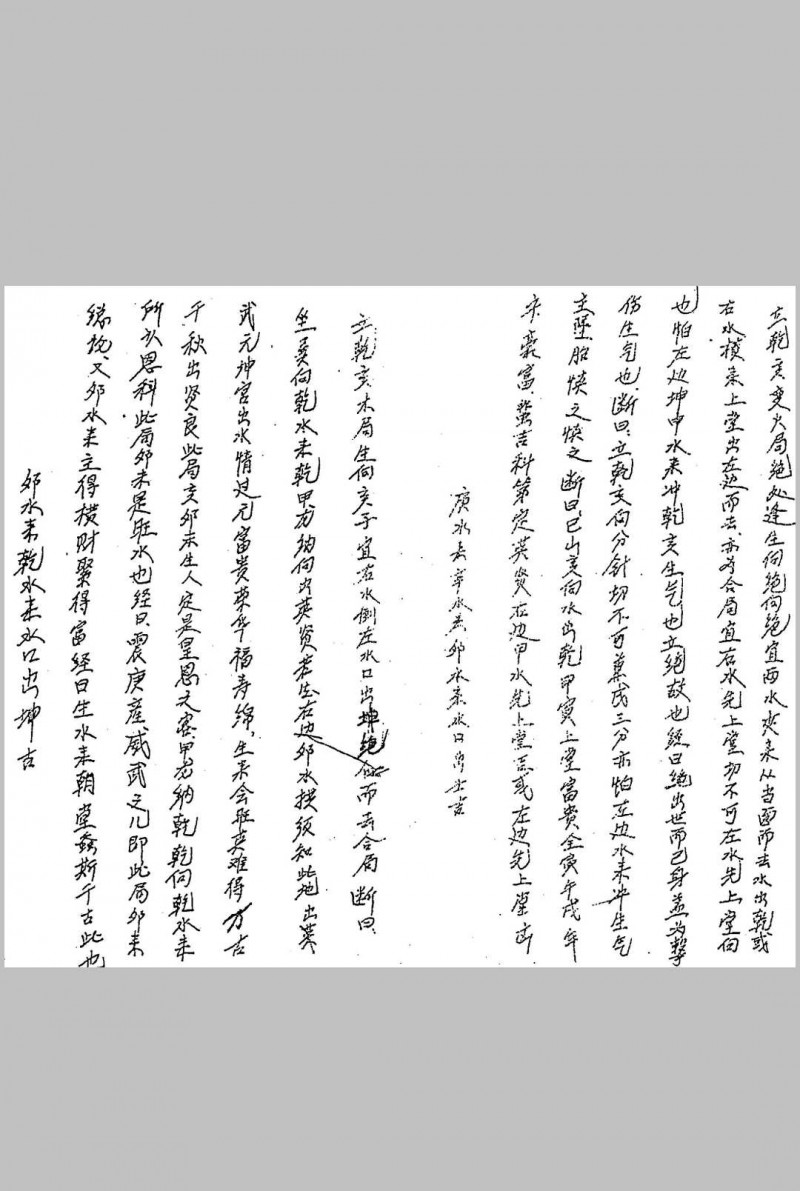 立乾亥变火局绝处逢生向绝向绝宜两水夹来从当面而去水出乾或
右水横来上堂出左边而去亦为合局宜右水先上堂切不可左水先上堂向
也怕左边坤申水来冲乾亥生气也立绝故也经曰绝出世而己身益为
伤生气也断曰立乾亥向分针切不可兼戌三分亦怕左边水来冲生气
主堕胎慎之慎之断曰巳山亥向水出乾甲寅上堂富贵全寅午戌年
来豪富登吉科第定英贤右边甲水先上堂或左边先上堂
庚水去辛水来卯水来水口出吉
立乾亥木局生向亥子宜右水倒左水口出坤绝位而去合局断曰
坐巽向乾水来乾甲方纳向出英贤若在右边卯水拱须知此地出英
武元坤宫出水情过元富贵荣华福寿绵生来会旺真难得万古
千秋出贤良此局亥卯未生人定是皇恩之客甲方纳乾乾向乾水来
所以恩科此局卯未是旺水也经曰震庚产威武之儿即此局卯来
又卯水来主得横财聚得富经曰生水来朝堂螽斯千古此也
卯水来乾水来水口出坤吉